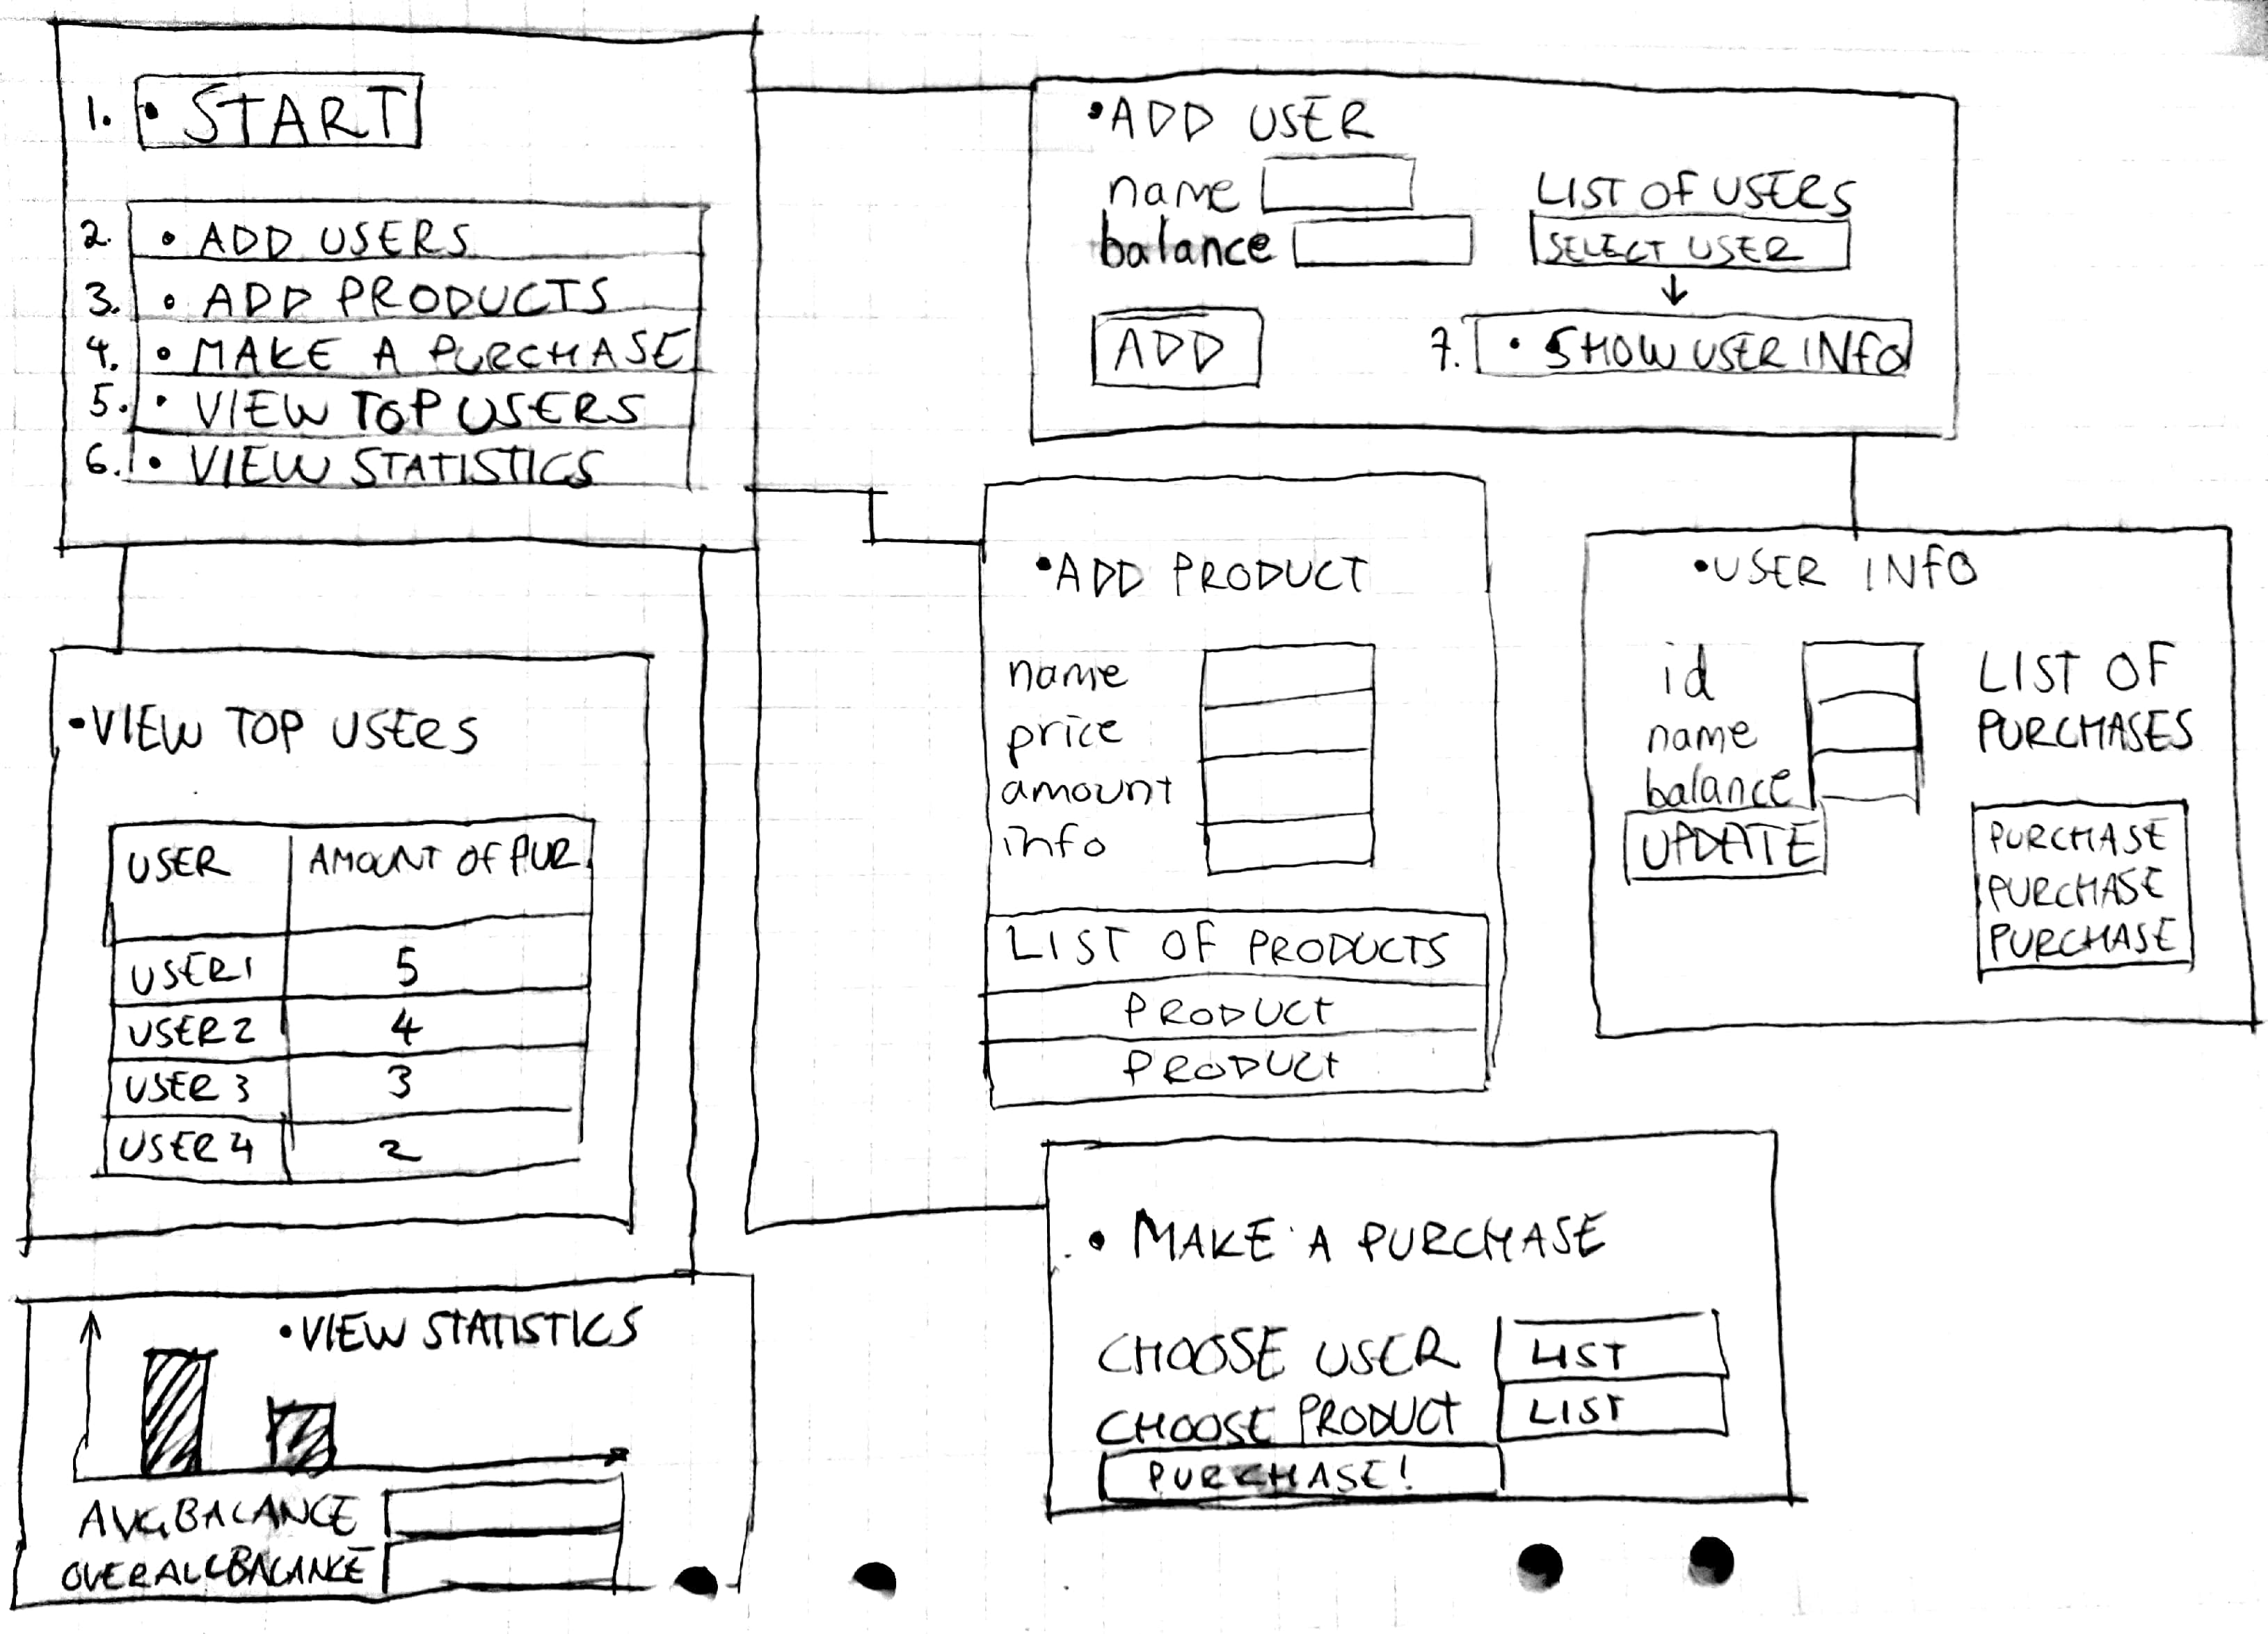 1. • START
2. • ADD USERS
3. • ADD PRODUCTS
4. • MAKE A PURCHASE
5. • VIEW TOP USERS
6. • VIEW STATISTICS
• ADD USER
name
balance
ADD
LIST OF USERS
SELECT USER
7. • SHOW USER INFO
• ADD PRODUCT
name
price
amount
info
LIST OF PRODUCTS
PRODUCT
PRODUCT
• USER INFO
id
name
balance
UPDATE
LIST OF
PURCHASES
PURCHASE
PURCHASE
PURCHASE
• VIEW TOP USERS
USER AMOUNT OF PUR.
USER1 5
USER2 4
USER 3 3
USER 4 2
• VIEW STATISTICS
AVG.BALANCE
OVERALL BALANCE
• MAKE A PURCHASE
CHOOSE USER LIST
CHOOSE PRODUCT LIST
PURCHASE!